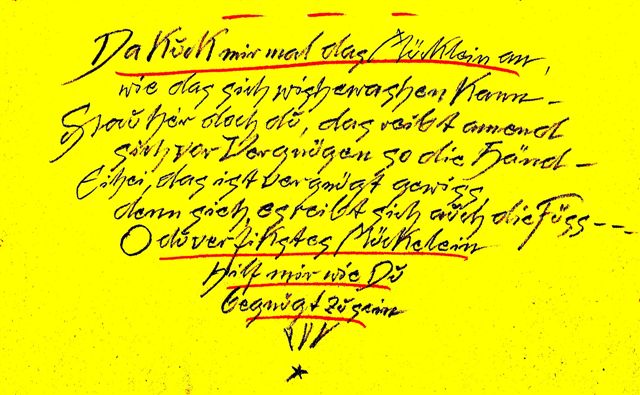 Da Kuck mir mal das Mücklein an,
wie das sich wischewaschen Kann –
Schau her doch du, das reibt amend
sich vor Vergnügen so die Händ –
Eihei, das ist vergnügt gewiss,
denn sieh, es reibt sich auch die Füss – –
O du verfikstes Mückelein
Hilf mir wie Du
begnügt zu sein